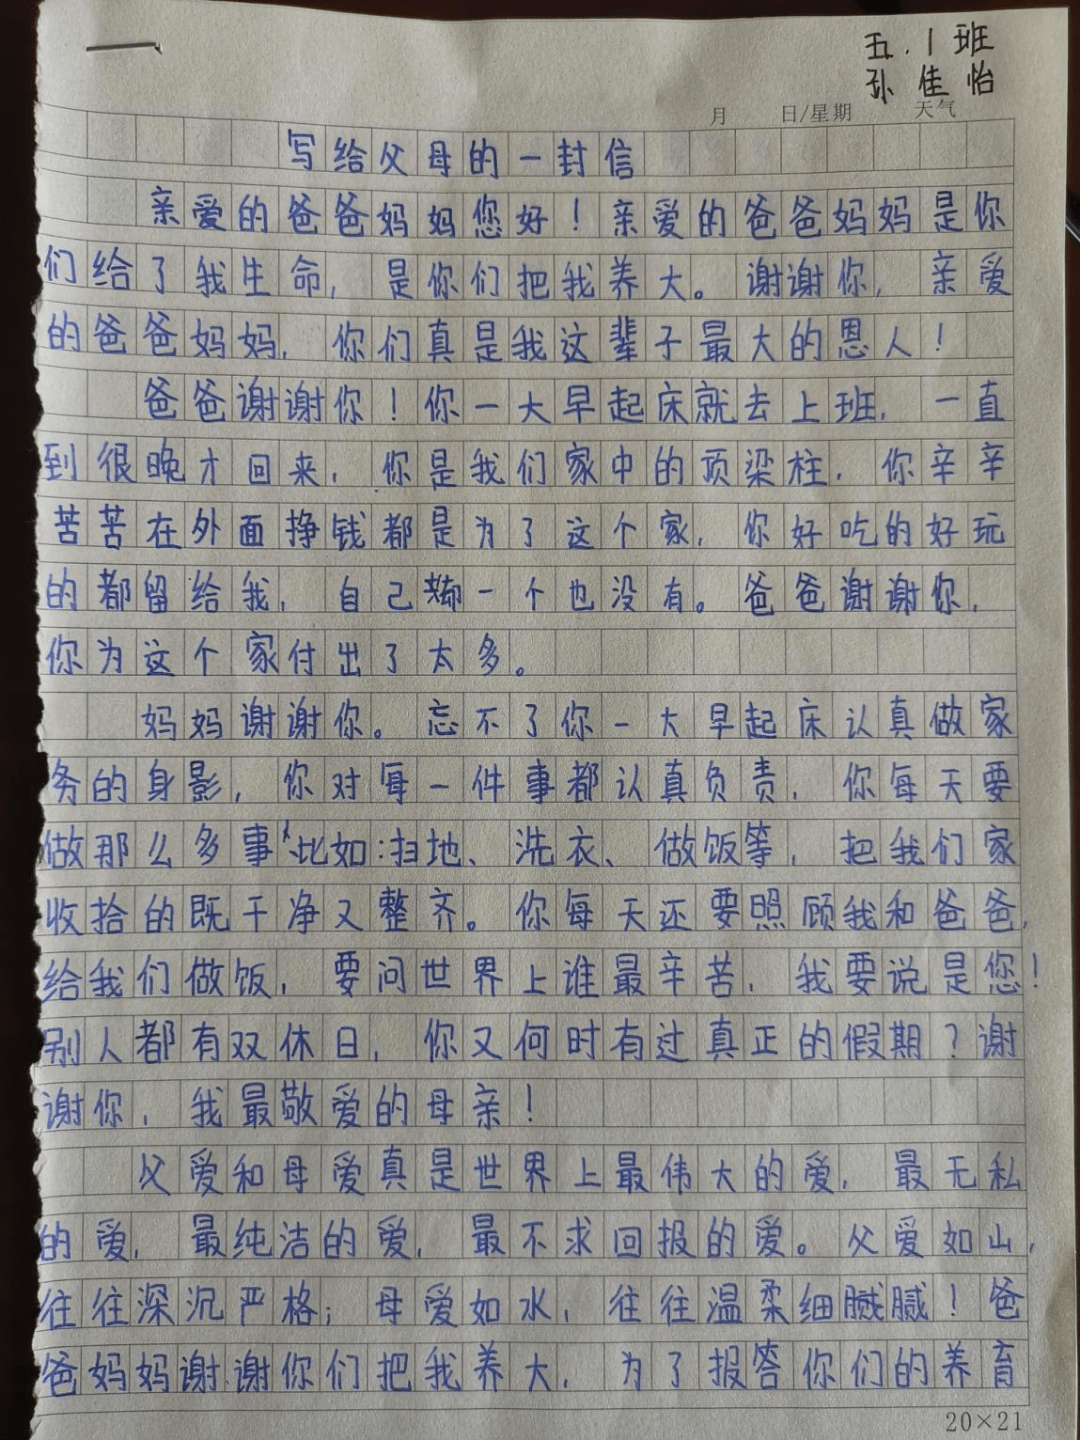 五.1班
孙佳怡
月 日/星期 天气
写给父母的一封信
亲爱的爸爸妈妈您好！亲爱的爸爸妈妈是你
们给了我生命，是你们把我养大。谢谢你，亲爱
的爸爸妈妈，你们真是我这辈子最大的恩人！
爸爸谢谢你！你一大早起床就去上班，一直
到很晚才回来，你是我们家中的顶梁柱，你辛辛
苦苦在外面挣钱都是为了这个家，你好吃的好玩
的都留给我，自己却一个也没有。爸爸谢谢你，
你为这个家付出了太多。
妈妈谢谢你。忘不了你一大早起床认真做家
务的身影，你对每一件事都认真负责，你每天要
做那么多事，比如：扫地、洗衣、做饭等，把我们家
收拾的既干净又整齐。你每天还要照顾我和爸爸，
给我们做饭，要问世界上谁最辛苦，我要说是您！
别人都有双休日，你又何时有过真正的假期？谢
谢你，我最敬爱的母亲！
父爱和母爱真是世界上最伟大的爱，最无私
的爱，最纯洁的爱，最不求回报的爱。父爱如山，
往往深沉严格；母爱如水，往往温柔细腻腻！爸
爸妈妈谢谢你们把我养大，为了报答你们的养育
20×21